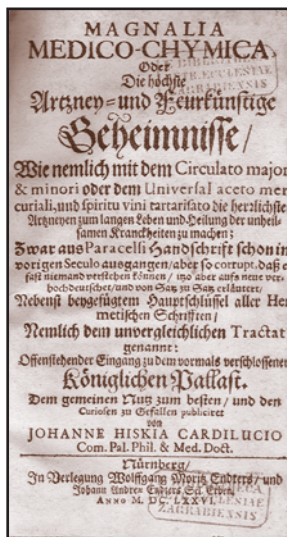 MAGNALIA
MEDICO-CHYMICA.
Oder
Die höchste
Artzney= und Feurkünstige
Geheimnisse/
Wie nemlich mit dem Circulato major
& minori oder dem Universal aceto mer
curiali, und spiritu vini tartarisato die herzlichste
Artzneyen zum langen Leben und Heilung der unheil-
samen Kranckheiten zu machen;
Zwar aus Paracelsi Handschrift schon in
vorigen Seculo ausgangen/ aber so corrupt, daß e
fast niemand verstehen können/ itzo aber aufs neue ver-
hochdeutschet/ und von Satz zu Satz erläutert/
Nebenst beygefügtem Hauptschlüssel aller Her-
metischen Schrifften/
Nemlich dem unvergleichlichen Tractat
genannt:
Offenstehender Eingang zu dem vormals verschlossenen
Königlichen Pallast.
Dem gemeinen Nutz zum besten/ und den
Curiosen zu Gefallen publiciret
von
JOHANNE HISKIA CARDILUCIO
Com. Pal. Phil. & Med. Doct.
Nürnberg/
In Verlegung Wolffgang Moritz Endters/ und
Johann Andreæ Endters Sel. Erben.
ANNO M. DC. LXXVI.
BIBLIOTHECA
ECCLESIAE
ZAGRABIENSIS
ZAGRABIENSIS